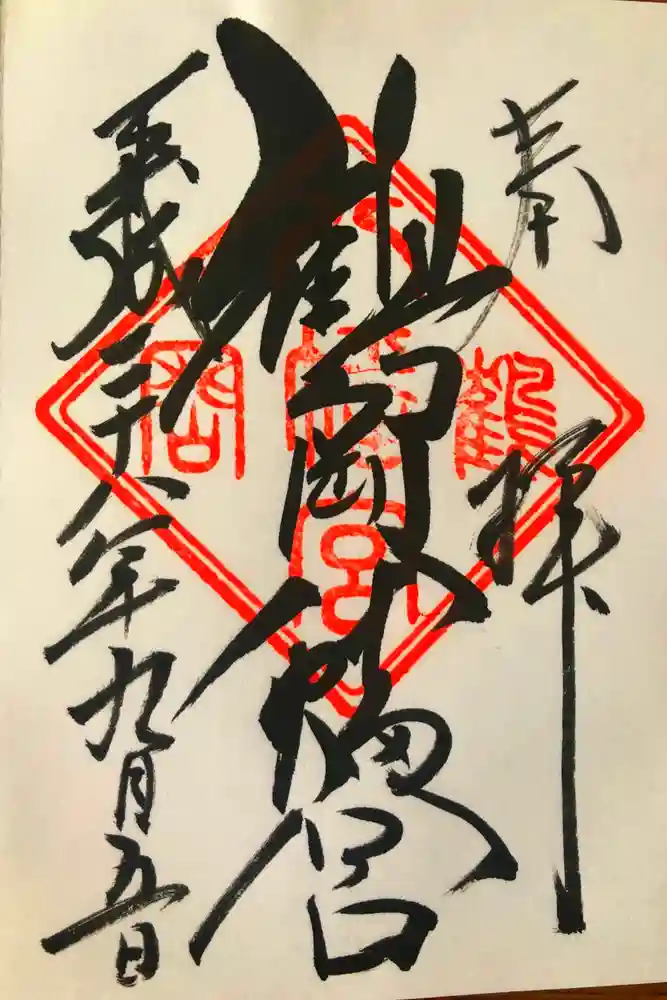 奉拝
鶴岡八幡宮
平成二十八年九月五日
鶴
八幡宮
岡